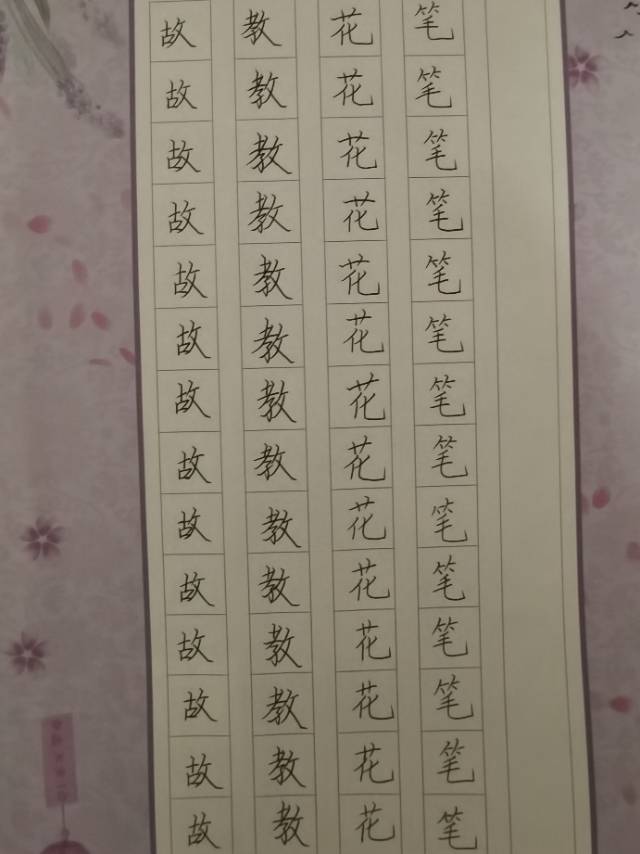 故 教 花 笔
故 教 花 笔
故 教 花 笔
故 教 花 笔
故 教 花 笔
故 教 花 笔
故 教 花 笔
故 教 花 笔
故 教 花 笔
故 教 花 笔
故 教 花 笔
故 教 花 笔
故 教 花 笔
故 教 花 笔